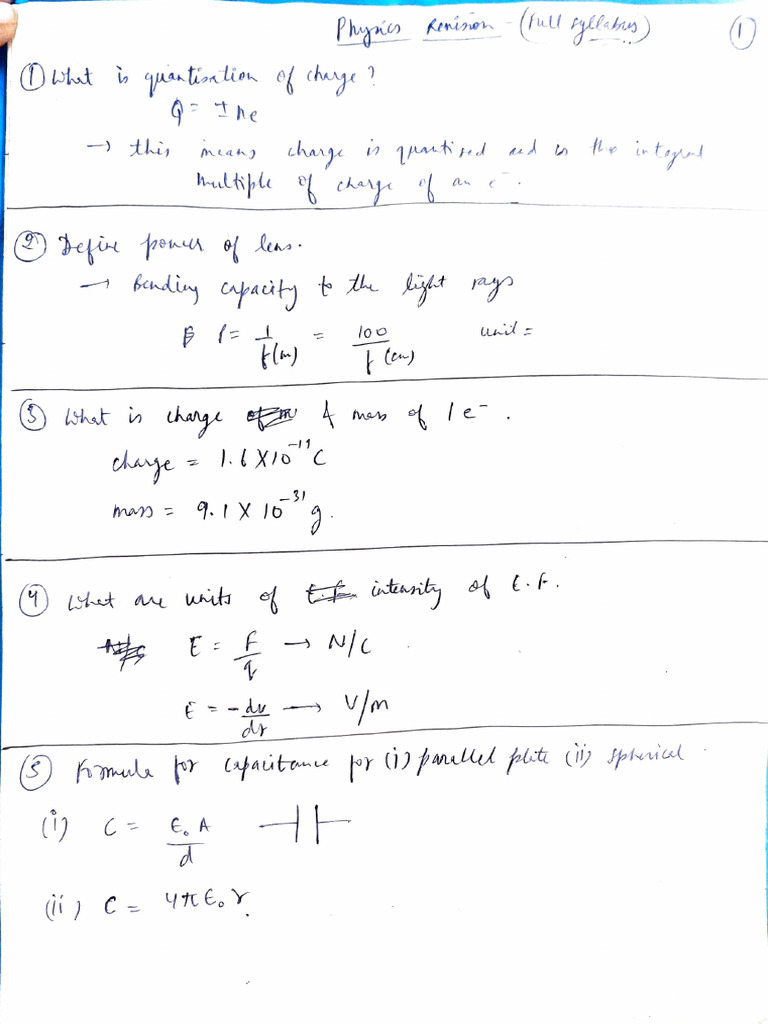 Physics Revision - (Full Syllabus) ①
① What is quantisation of charge?
Q = ± ne
→ this means charge is quantised and is the integral
multiple of charge of an e⁻.
② Define power of lens.
→ Bending capacity to the light rays
P = 1/f(m) = 100/f(cm) unit =
③ What is charge & mass of 1 e⁻.
charge = 1.6 X 10⁻¹⁹ C
mass = 9.1 X 10⁻³¹ g.
④ What are units of intensity of E.F.
E = F/q → N/C
E = -dv/dr → V/m
⑤ Formula for capacitance for (i) parallel plate (ii) spherical.
(i) C = ε₀ A/d
(ii) C = 4πε₀ r.